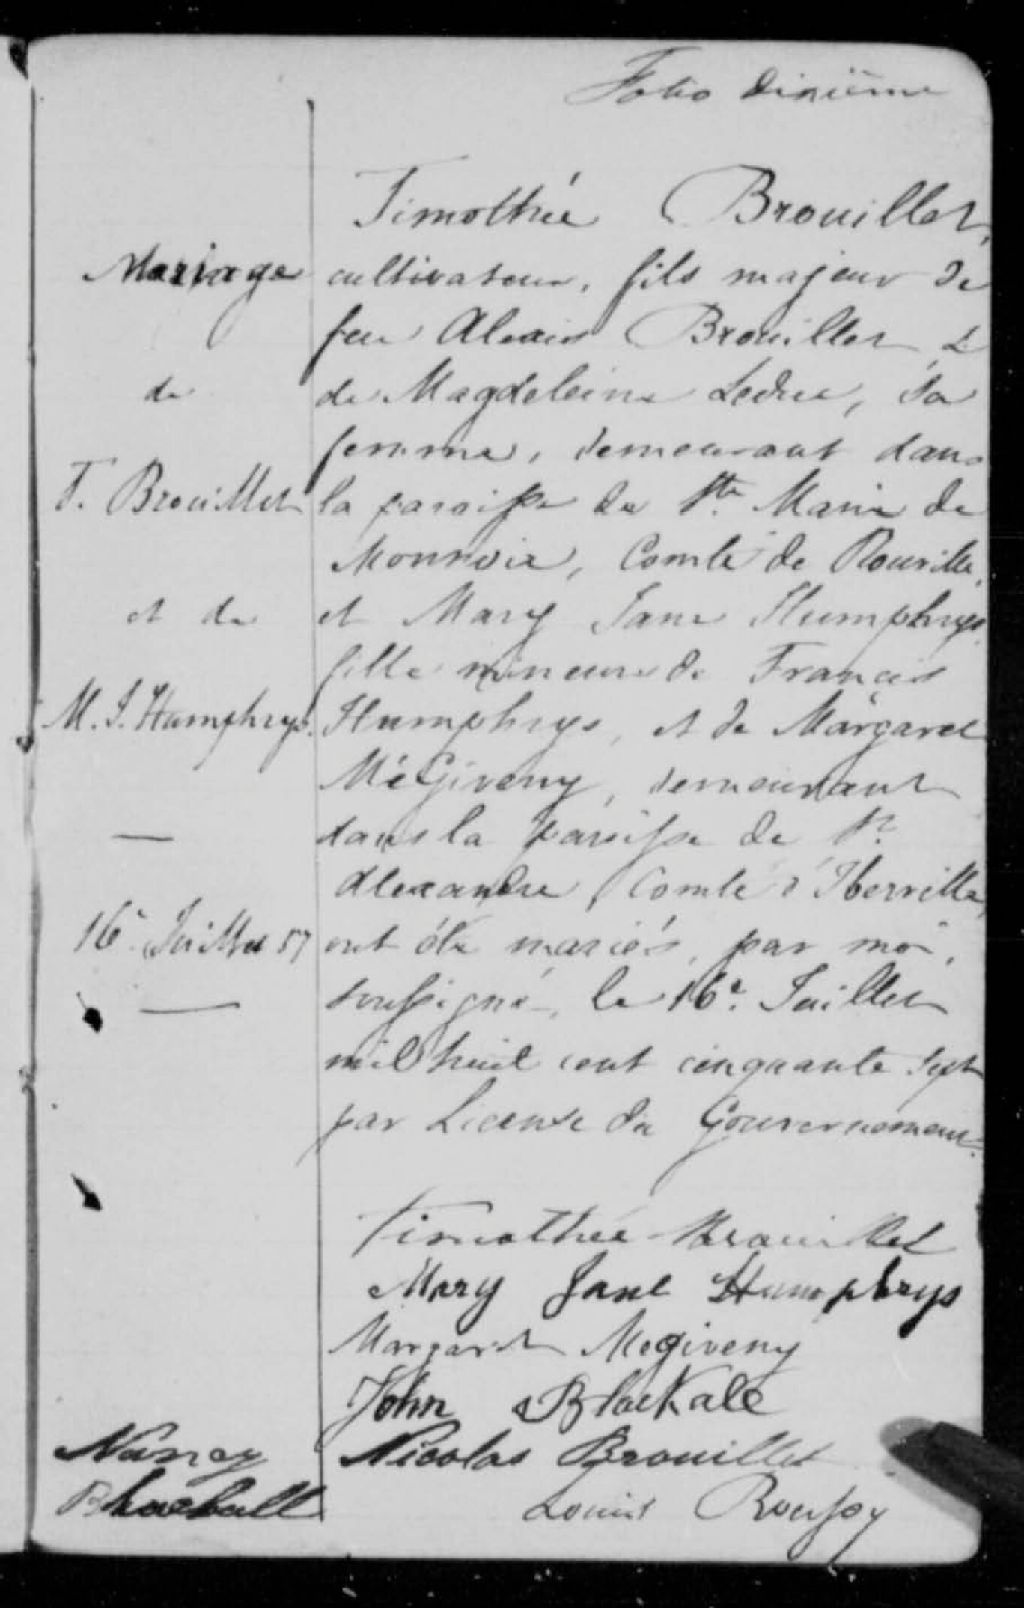 Folio Dixième
Timothée Brouillet,
Mariage
cultivateur, fils majeur de
feu Alexis Brouillet &
de
de Magdeleine Leduc, sa
femme, demeurant dans
T. Brouillet
la paroisse de Ste Marie de
Monnoir, Comté de Rouville,
et de
et Mary Jane Humphrys
fille mineure de Francis
M. J. Humphrys.
Humphrys, et de Margaret
McGiveny, demeurant
dans la paroisse de St
Alexandre, Comté d'Iberville,
16e Juillet 57
ont été mariés, par moi,
soussigné, le 16e Juillet
mil huit cent cinquante sept
par License du Gouvernement.
Timothée Brouillet
Mary Jane Humphrys
Margaret Megiveny
John Blackale
Nancy
Nicolas Brouillet
Louis Roussy